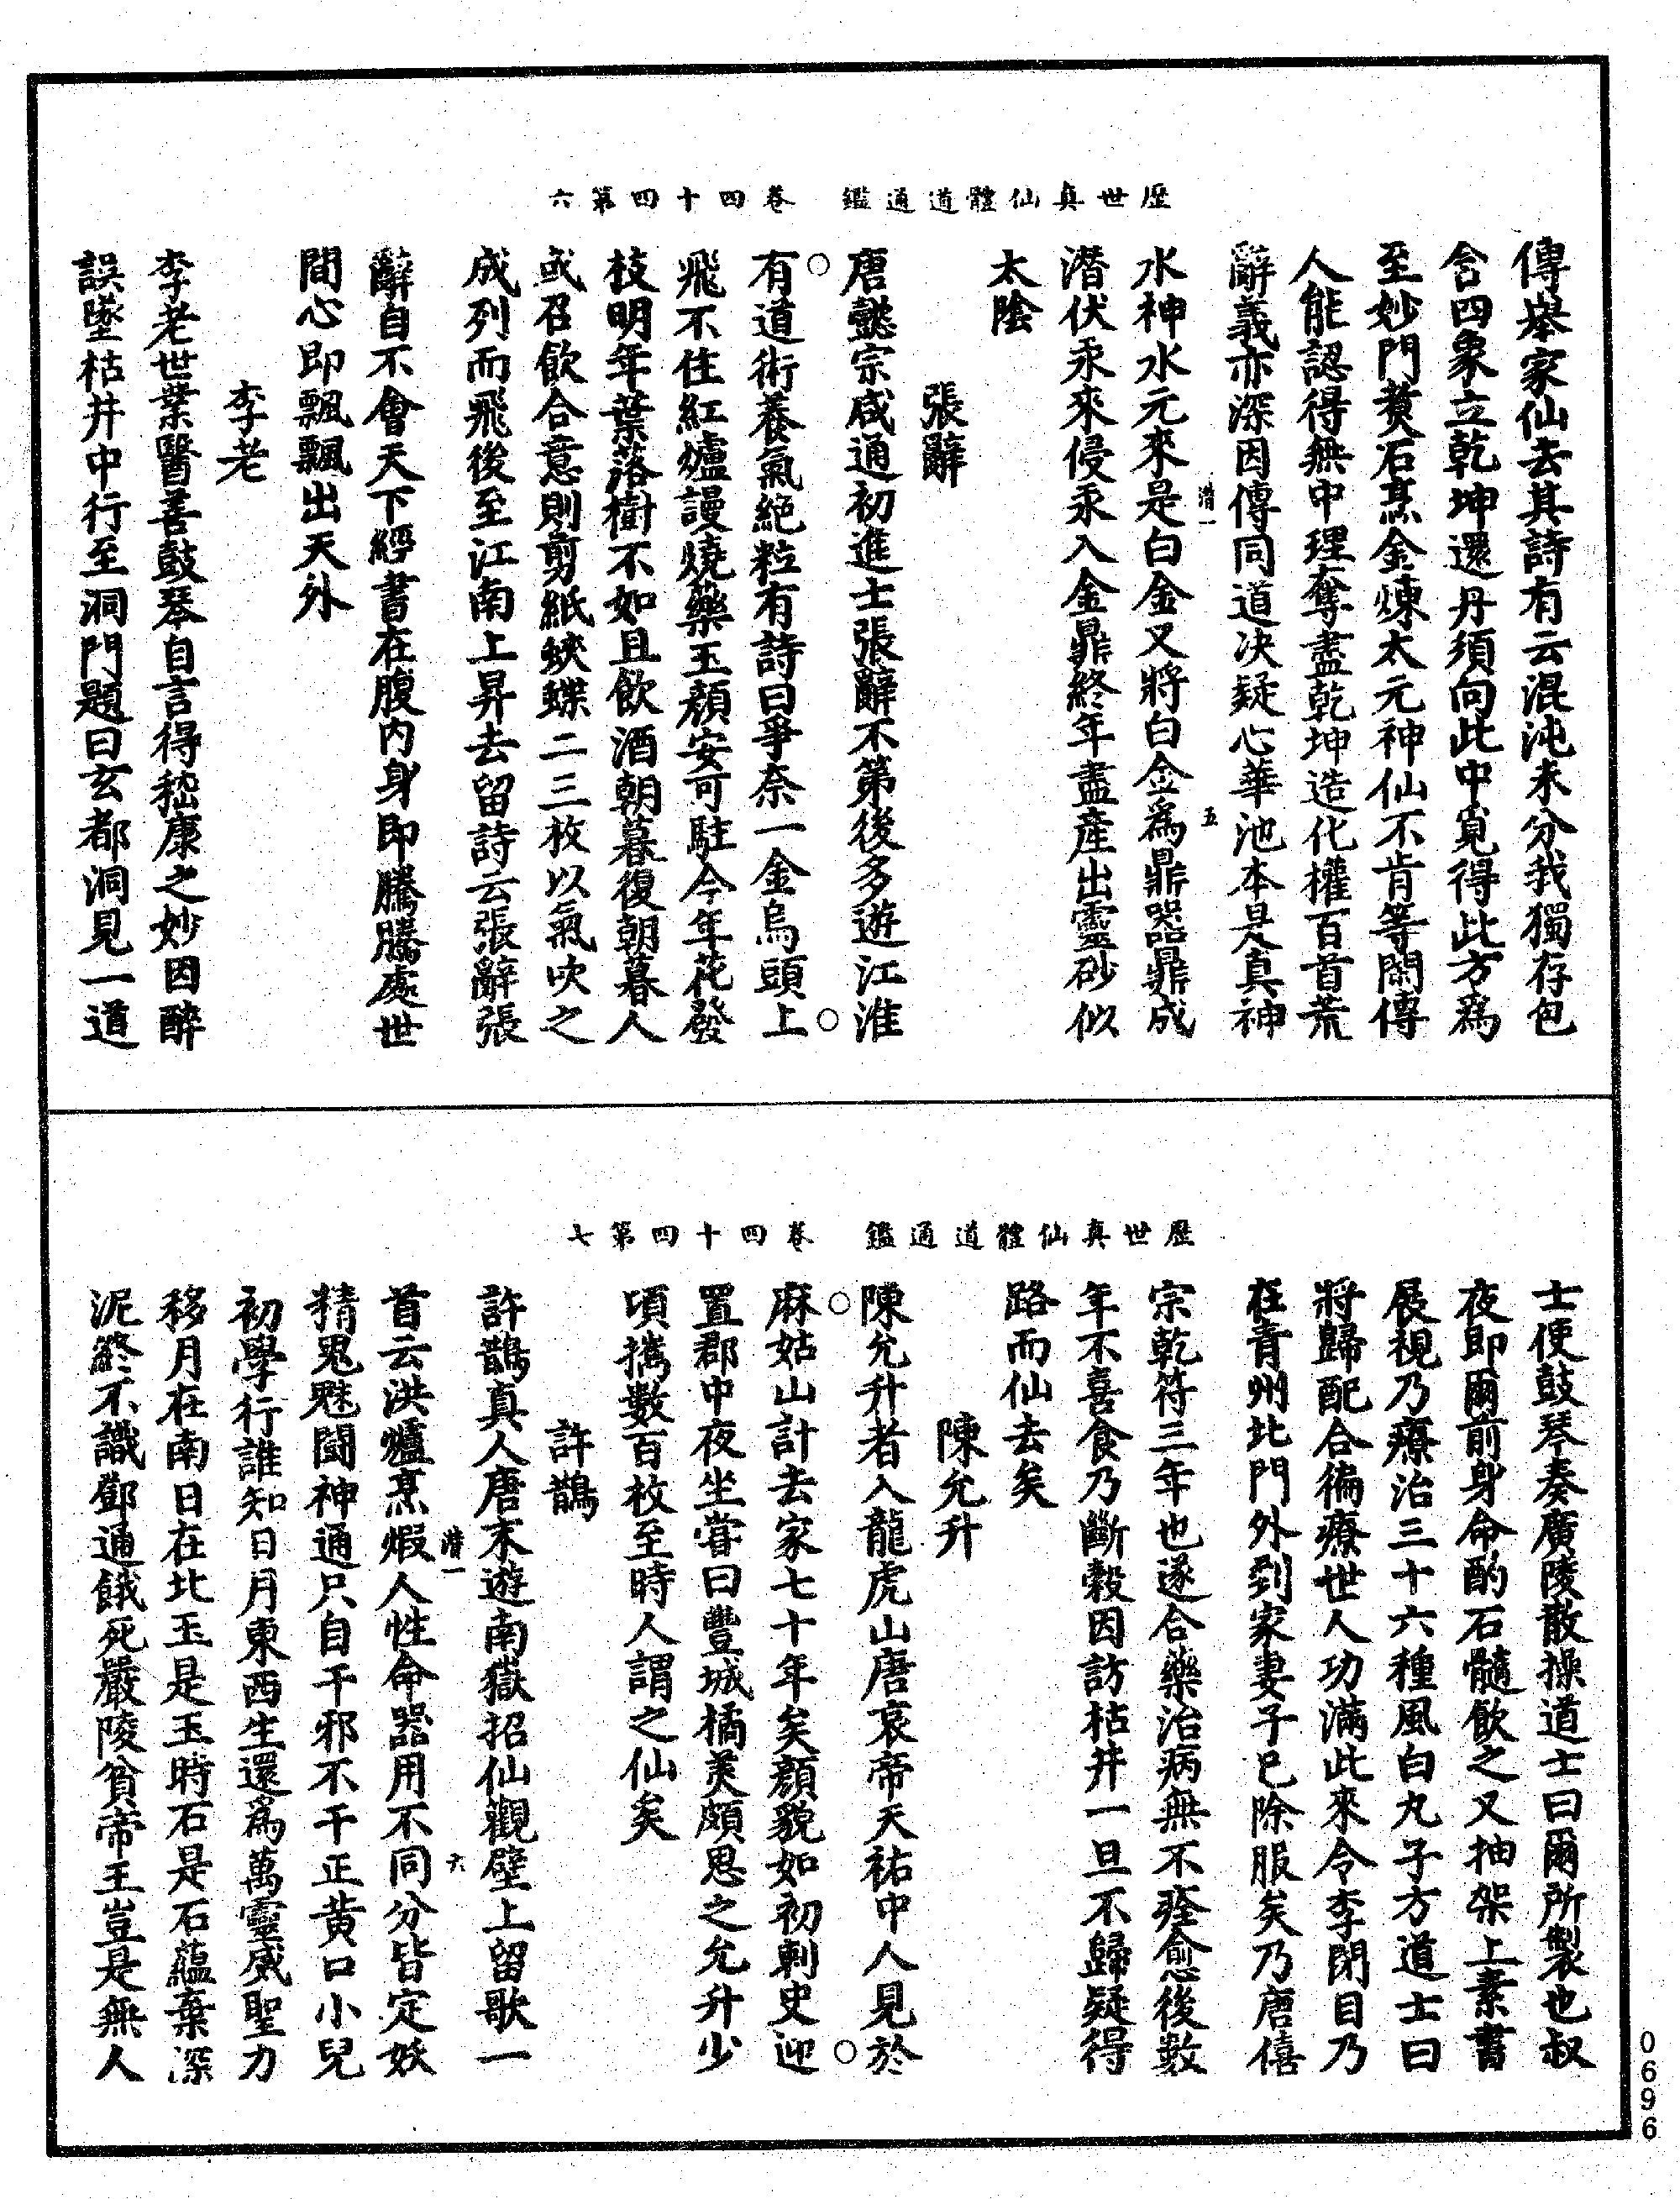 歷世真仙體道通鑑　卷四十四第六
傳舉家仙去其詩有云混沌未分我獨存包
含四象立乾坤還丹須向此中覓得此方為
至妙門煑石烹金煉太元神仙不肯等閑傳
人能認得無中理奪盡乾坤造化權百首荒
辭義亦深因傳同道决疑心華池本是真神
潜一　五
水神水元來是白金又將白金為鼎器鼎成
潜伏汞來侵汞入金鼎終年盡產出靈砂似
太陰
張辭
唐懿宗咸通初進士張辭不第後多遊江淮
有道術養氣絶粒有詩曰爭奈一金烏頭上
飛不住紅爐謾燒藥玉顏安可駐今年花發
枝明年葉落樹不如且飲酒朝暮復朝暮人
或召飲合意則剪紙蛺蝶二三枚以氣吹之
成列而飛後至江南上昇去留詩云張辭張
辭自不會天下經書在腹内身即騰騰處世
間心即飄飄出天外
李老
李老世業醫善鼓琴自言得嵇康之妙因醉
誤墜枯井中行至洞門題曰玄都洞見一道
歷世真仙體道通鑑　卷四十四第七
士使鼓琴奏廣陵散操道士曰爾所製也叔
夜即爾前身命酌石髓飲之又抽架上素書
展視乃療治三十六種風白丸子方道士曰
將歸配合徧療世人功滿此來令李閉目乃
在青州北門外到家妻子已除服矣乃唐僖
宗乾符三年也遂合藥治病無不痊愈後數
年不喜食乃斷穀因訪枯井一旦不歸疑得
路而仙去矣
陳允升
陳允升者入龍虎山唐哀帝天祐中人見於
麻姑山計去家七十年矣顏貌如初刺史迎
置郡中夜坐甞曰豐城橘美頗思之允升少
頃攜數百枚至時人謂之仙矣
許鵲
許鵲真人唐末遊南嶽招仙觀壁上留歌一
潜一　六
首云洪爐烹煆人性命器用不同分皆定妖
精鬼魅鬪神通只自干邪不干正黄口小兒
初學行誰知日月東西生還為萬靈威聖力
移月在南日在北玉是玉時石是石蘊棄深
泥終不識鄧通餓死嚴陵貧帝王豈是無人
0696